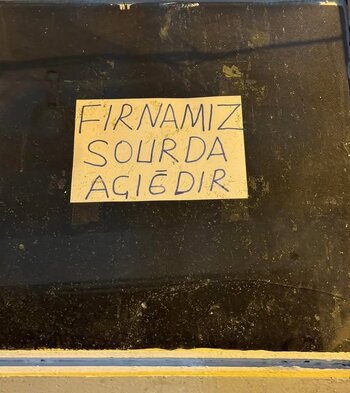 FIRNAMIZ
SOURDA
AGIĞDIR